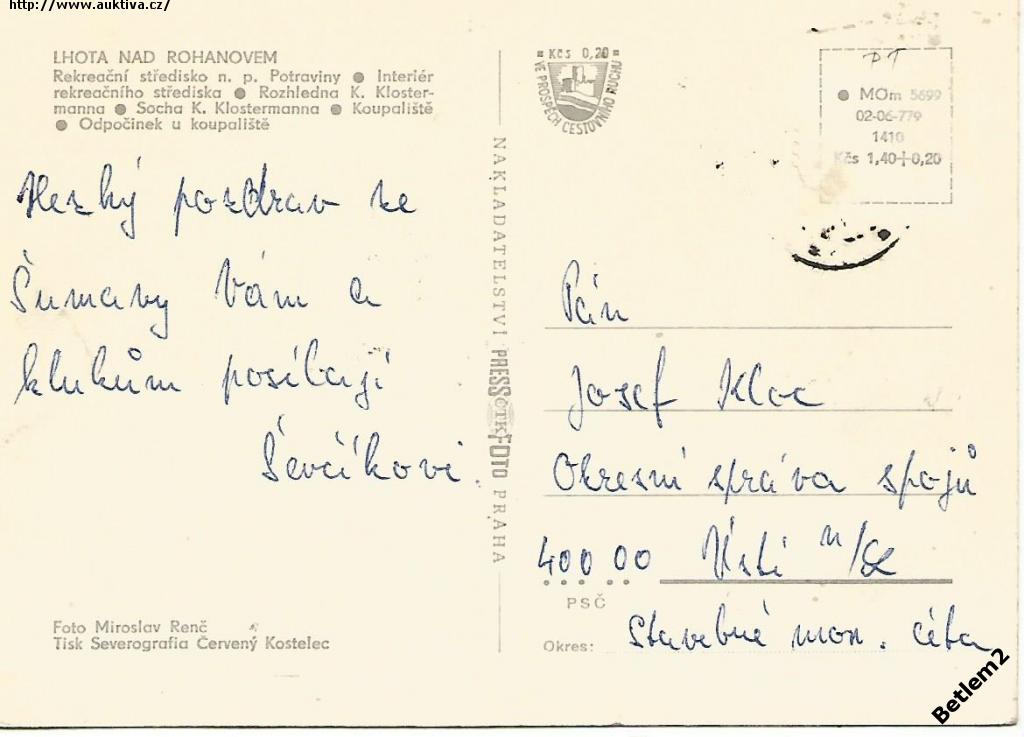 http://www.auktiva.cz/
LHOTA NAD ROHANOVEM
Rekreační středisko n. p. Potraviny ● Interiér
rekreačního střediska ● Rozhledna K. Kloster-
manna ● Socha K. Klostermanna ● Koupaliště
● Odpočinek u koupaliště
Hezký pozdrav ze
Šumavy Vám a
klukům posílají
Ševčíkovi.
Foto Miroslav Renč
Tisk Severografia Červený Kostelec
NAKLADATELSTVÍ PRESSFOTO PRAHA
ČTK
Kčs 0,20
VE PROSPĚCH CESTOVNÍHO RUCHU
PT
● MOm 5699
02-06-779
1410
Kčs 1,40+0,20
Pán
Josef Kloc
Okresní správa spojů
400 00 Ústí n/L
PSČ
Okres: Stavebně mon. četa
Betlem2